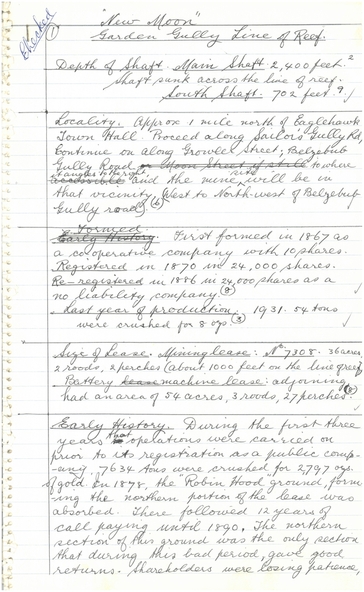 Checked
1
"New Moon"
Garden Gully Line of Reef.
Depth of Shaft. Main Shaft 2,400 feet. 2
Shaft sunk across the line of reef.
South Shaft. 702 feet. 9
Locality. Approx 1 mile north of Eaglehawk
Town Hall. Proceed along Sailor's Gully Rd,
Continue on along Growler Street, Belzebub
Gully Road, or Moon Street if still to where
accessible and the mine site will be in
that vicinity West to North-west of Belzebub
Gully road. 6
Formed
Early History. First formed in 1867 as
a co-operative company with 10 shares.
Registered in 1870 in 24,000 shares.
Re-registered in 1886 in 24,000 shares as a
no liability company.
Last year of production. 1931. 54 tons
were crushed for 8 ozs 3
Size of Lease. Mining lease: No 7308. 36 acres,
2 roods, 2 perches (about 1000 feet on the line of reef)
Battery lease machine lease: adjoining,
had an area of 54 acres, 3 roods, 27 perches. 8
Early History. During the first three
years that operations were carried on
prior to its registration as a public comp-
-any. 7634 tons were crushed for 2,797 ozs.
of gold. In 1878, the Robin Hood ground, form-
ing the northern portion of the lease was
absorbed. There followed 12 years of
call paying until 1890. The northern
section of this ground was the only section
that during this bad period, gave good
returns. Shareholders were losing patience,